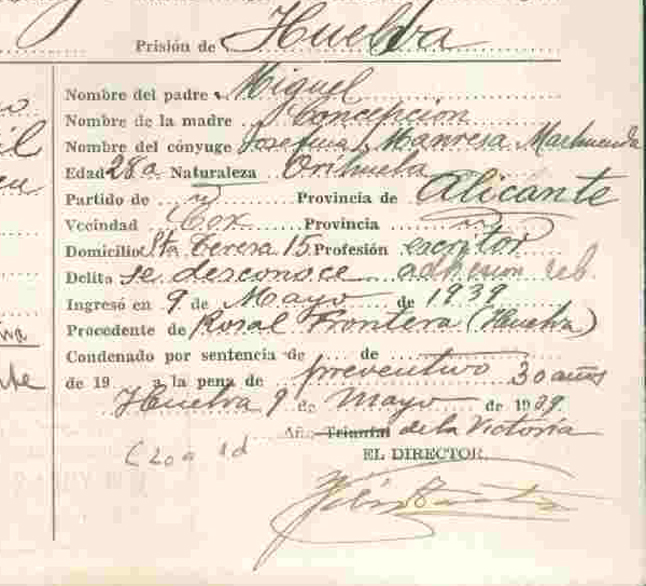 Prisión de Huelva
Nombre del padre Miguel
Nombre de la madre Concepción
Nombre del cónyuge Josefina Manresa Marhuenda
Edad 28 a Naturaleza Orihuela
Partido de id Provincia de Alicante
Vecindad Cox Provincia id
Domicilio Sta Teresa 15 Profesión escritor
Delito se desconoce adhesion reb.
Ingresó en 9 de Mayo de 1939
Procedente de Rosal Frontera (Huelva)
Condenado por sentencia de de
de 19 a la pena de preventivo 30 años
Huelva 9 de Mayo de 1939.
Año Triunfal de la Victoria
EL DIRECTOR